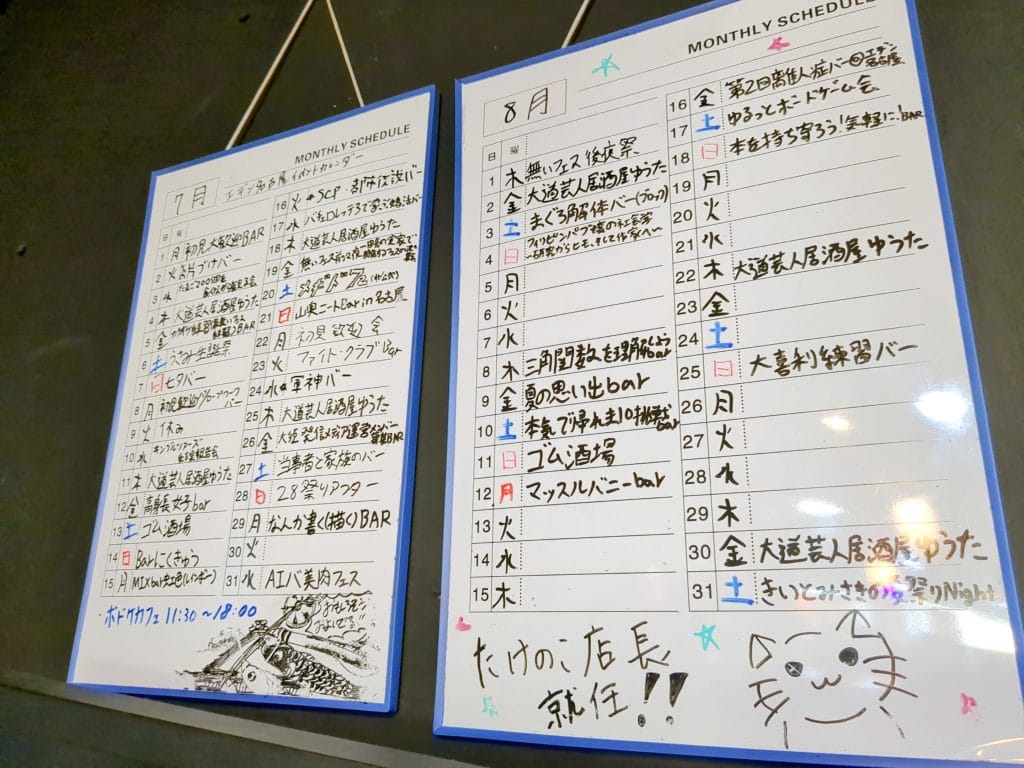 MONTHLY SCHEDULE
7月 エデン名古屋イベントカレンダー
日 曜
1 月 初見大歓迎BAR
2 火 お片づけバー
3 水
4 木 大道芸人居酒屋ゆうた
5 金
6 土 うさみ生誕祭
7 日 七夕バー
8 月
9 火 休み
10 水
11 木 大道芸人居酒屋ゆうた
12 金 高身長女子bar
13 土 ゴム酒場
14 日 Barにくきゅう
15 月 MIXbar虹色(レインボー)
16 火 #SCP・都市伝説バー
17 水
18 木 大道芸人居酒屋ゆうた
19 金
20 土
21 日 山奥ニートbar in 名古屋
22 月 初見飲む会
23 火 ファイト・クラブbar
24 水 軍神バー
25 木 大道芸人居酒屋ゆうた
26 金
27 土 当事者と家族のバー
28 日 28祭りアフター
29 月 なんか書く(描く)BAR
30 火
31 水 AIバ美肉フェス
・ボドゲカフェ 11:30〜18:00
MONTHLY SCHEDULE
8月
日 曜
1 木 無いフェス後夜祭
2 金 大道芸人居酒屋ゆうた
3 土 まぐろ解体バー(ブロック)
4 日 フィリピンパブ嬢の社会学
〜研究からヒモ、そして作家へ〜
5 月
6 火
7 水
8 木 三角関数を理解しようbar
9 金 夏の思い出bar
10 土
11 日 ゴム酒場
12 月 マッスルバニーbar
13 火
14 水
15 木
16 金 第2回離人症バー@エデン名古屋
17 土 ゆるっとボードゲーム会
18 日 本を持ち寄ろう!気軽に!BAR
19 月
20 火
21 水
22 木 大道芸人居酒屋ゆうた
23 金
24 土
25 日 大喜利練習バー
26 月
27 火
28 水
29 木
30 金 大道芸人居酒屋ゆうた
31 土 きいとみさきの夏祭りNight
たけのこ店長
就任!!